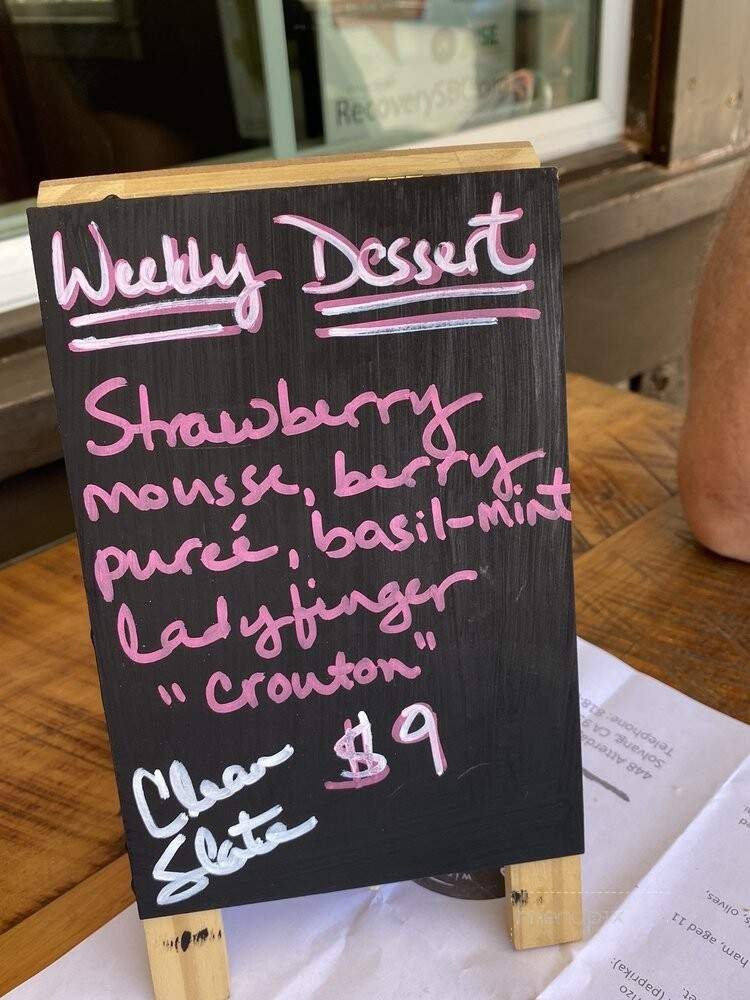 RecoverySBC
Weekly Dessert
Strawberry
mousse, berry
pureé, basil-mint
ladyfinger
"crouton"
$9
Clean
Slate
448 Atterdag
Solvang, CA 9
Telephone: 818
olives,
ham, aged 11
(paprika):
menupix